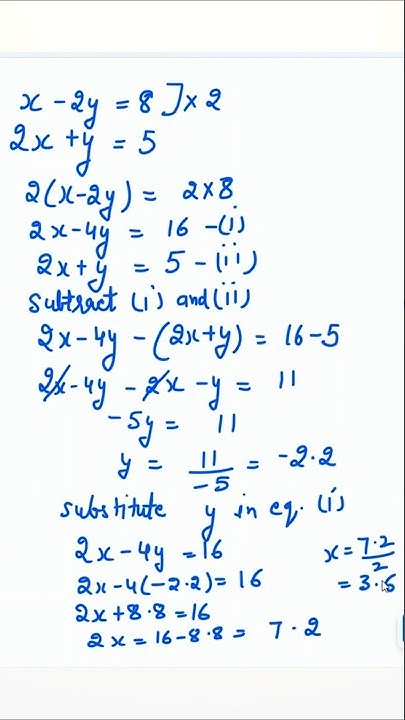 x - 2y = 8 ] × 2
2x + y = 5
2(x-2y) = 2×8
2x-4y = 16 -(i)
2x+y = 5 -(ii)
subtract (i) and (ii)
2x-4y -(2x+y) = 16-5
2x-4y - 2x - y = 11
-5y = 11
y = 11/-5 = -2.2
substitute y in eq. (i)
2x-4y = 16
2x-4(-2.2) = 16
2x+8.8 = 16
2x = 16-8.8 = 7.2
x = 7.2/2
= 3.6